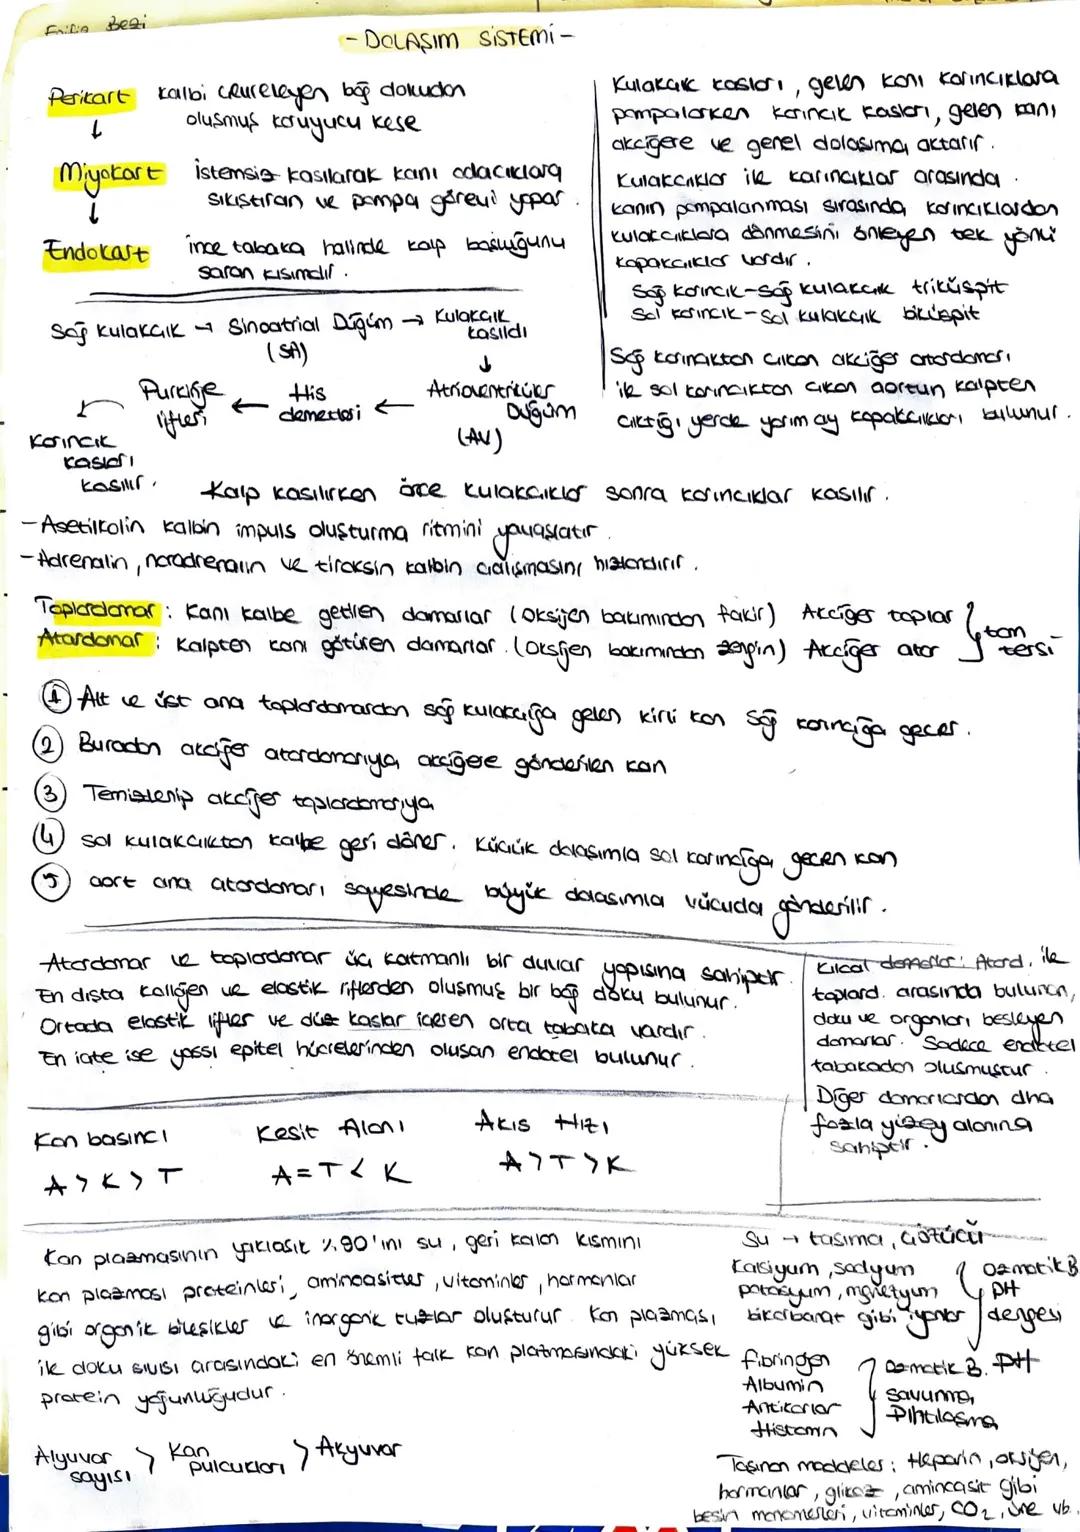 Bezi
- DOLAŞIM SİSTEMİ -
Perikart kalbi çevreleyen bağ dokudan
oluşmuş koruyucu kese
↓
Miyokart istemsiz kasılarak kanı odacıklara
sıkıştıran ve pompa görevi yapar.
↓
Endokart ince tabaka halinde kalp boşluğunu
saran kısımdır.
Kulakçık kasları, gelen kanı karıncıklara
pompalarken karıncık kasları, gelen kanı
akciğere ve genel dolaşıma aktarır.
Kulakçıklar ile karıncıklar arasında
kanın pompalanması sırasında karıncıklardan
kulakçıklara dönmesini önleyen tek yönlü
kapakçıklar vardır.
Sağ karıncık-Sağ kulakcık triküspit
Sol karıncık-Sol kulakçık biküspit
Sağ karıncıktan çıkan akciğer atardamarı
ile sol karıncıktan çıkan aortun kalpten
çıktığı yerde yarım ay kapakçıkları bulunur.
Sağ kulakçık → Sinoatrial Düğüm → Kulakçık
(SA) kasıldı
↓
Karıncık ← Purkinje ← His ← Atrioventriküler
kasları lifleri demetleri Düğüm
kasılır. (AV)
Kalp kasılırken önce kulakçıklar sonra karıncıklar kasılır.
-Asetilkolin kalbin impuls oluşturma ritmini yavaşlatır.
-Adrenalin, noradrenalin ve tiroksin kalbin çalışmasını hızlandırır.
Toplardamar: Kanı kalbe getiren damarlar (Oksijen bakımından fakir) Akciğer toplar } tam
Atardamar: Kalpten kanı götüren damarlar. (Oksijen bakımından zengin) Akciğer atar } tersi
① Alt ve üst ana toplardamardan sağ kulakçığa gelen kirli kan sağ karıncığa geçer.
② Buradan akciğer atardamarıyla akciğere gönderilen kan
③ Temizlenip akciğer toplardamarıyla
④ sol kulakcıktan kalbe geri döner. Küçük dolaşımla sol karıncığa geçen kan
⑤ aort ana atardamarı sayesinde büyük dolaşımla vücuda gönderilir.
Atardamar ve toplardamar üç katmanlı bir duvar yapısına sahiptir.
En dışta kollojen ve elastik liflerden oluşmuş bir bağ doku bulunur.
Ortada elastik lifler ve düz kaslar içeren orta tabaka vardır.
En içte ise yassı epitel hücrelerinden oluşan endotel bulunur.
Kılcal damarlar: Atard. ile
toplard. arasında bulunan,
doku ve organları besleyen
damarlar. Sadece endotel
tabakadan oluşmuştur.
Diğer damarlardan dha
fazla yüzey alanına
sahiptir.
Kan basıncı Kesit Alanı Akış Hızı
A > K > T A = T < K A > T > K
Kan plazmasının yaklaşık %90'ını su, geri kalan kısmını
kan plazması proteinleri, aminoasitler, vitaminler, hormonlar
gibi organik bileşikler ve inorganik tuzlar oluşturur. Kan plazması
ile doku sıvısı arasındaki en önemli fark kan platmasındaki yüksek
protein yoğunluğudur.
Alyuvar > Kan > Akyuvar
sayısı pulcukları
Su → taşıma, çözücü
Kalsiyum, sodyum } Ozmotik B
potasyum, magnezyum } PH
bikarbonat gibi iyonlar } dengesi
fibrinojen } Ozmotik B. PH
Albumin } Savunma,
Antikorlar } Pıhtılaşma
Histamin
Taşınan maddeler: Heparin, oksijen,
hormonlar, glikoz, aminoasit gibi
besin monomerleri, vitaminler, CO2, üre vb.